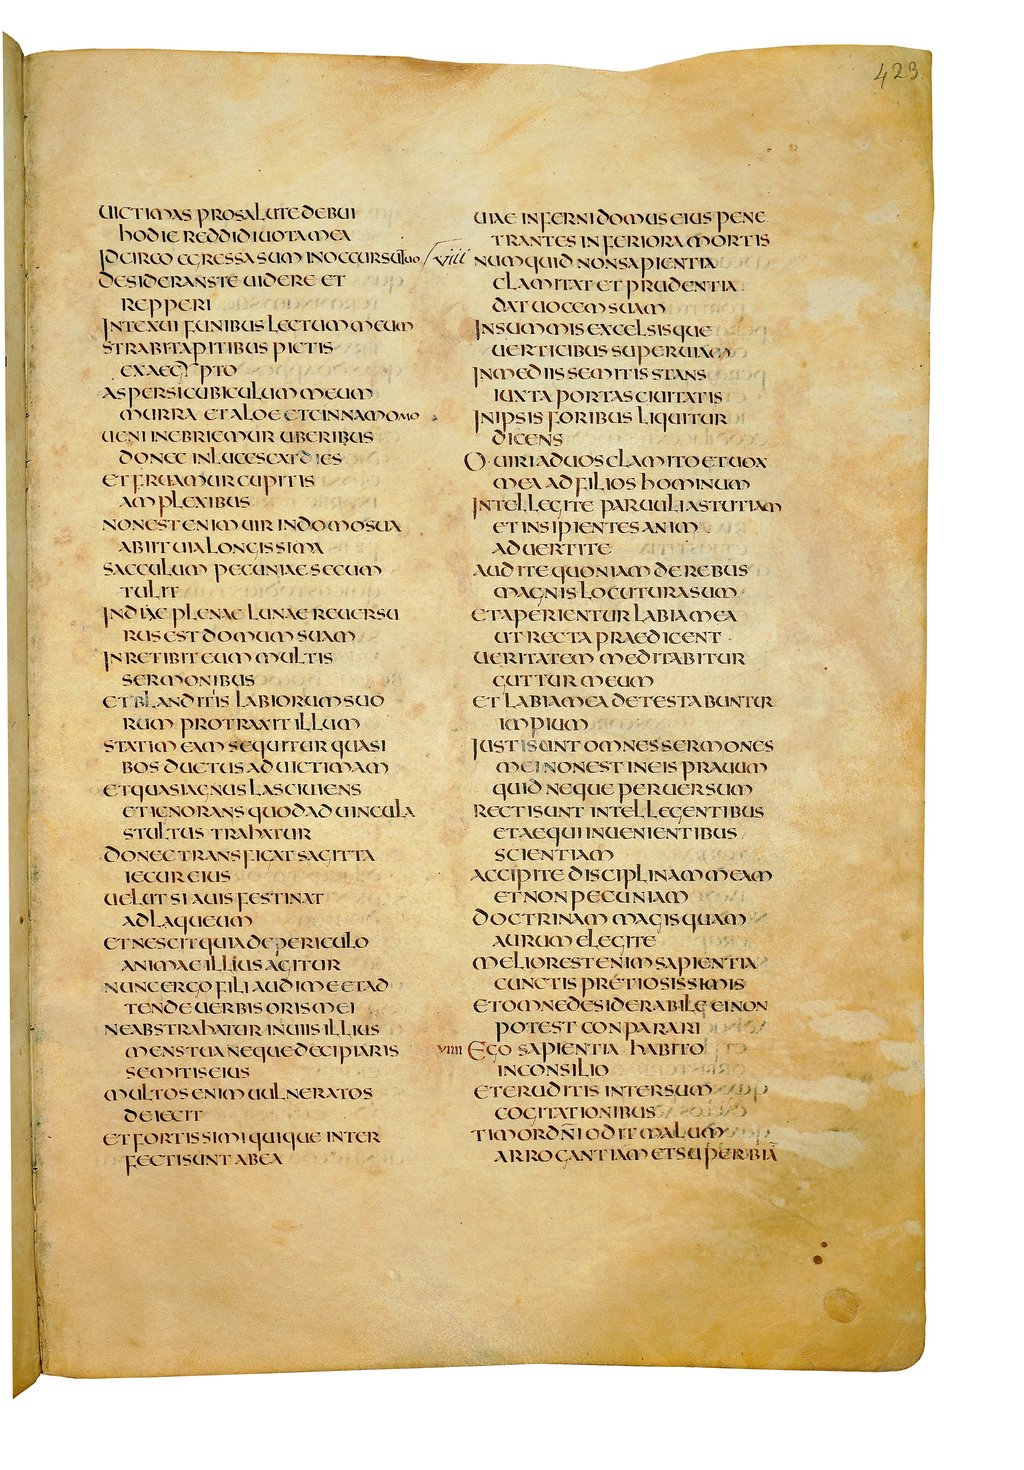 423
UICTIMAS PROSALUTE DEBUI
HODIE REDDIDI UOTA MEA
IDCIRCO EGRESSA SUM IN OCCURSUM TUO
DESIDERANS TE UIDERE ET
REPPERI
INTEXUI FUNIBUS LECTUM MEUM
STRABI TAPITIBUS PICTIS
EX AEGYPTO
ASPERSI CUBICULUM MEUM
MURRA ET ALOE ET CINNAMOMO
UENI INEBRIEMUR UBERIBUS
DONEC INLUCESCAT DIES
ET FRUAMUR CUPITIS
AMPLEXIBUS
NON EST ENIM UIR IN DOMO SUA
ABIIT UIA LONGISSIMA
SACCULUM PECUNIAE SECUM
TULIT
IN DIAE PLENAE LUNAE REUERSU
RUS EST DOMUM SUAM
INRETIBIT EUM MULTIS
SERMONIBUS
ET BLANDITIIS LABIORUM SUO
RUM PROTRAXIT ILLUM
STATIM EAM SEQUITUR QUASI
BOS DUCTUS AD UICTIMAM
ET QUASI AGNUS LASCIUIENS
ET IGNORANS QUOD AD UINCULA
STULTUS TRAHATUR
DONEC TRANSFIGAT SAGITTA
IECUR EIUS
UELUT SI AUIS FESTINAT
AD LAQUEUM
ET NESCIT QUIA DE PERICULO
ANIMAE ILLIUS AGITUR
NUNC ERGO FILI AUDI ME ET AD
TENDE UERBIS ORIS MEI
NE ABSTRAHATUR IN UIIS ILLIUS
MENS TUA NEQUE DECIPIARIS
SEMITIS EIUS
MULTOS ENIM UULNERATOS
DEIECIT
ET FORTISSIMI QUIQUE INTER
FECTI SUNT AB EA
UIAE INFERNI DOMUS EIUS PENE
TRANTES INFERIORA MORTIS
VIII NUMQUID NON SAPIENTIA
CLAMITAT ET PRUDENTIA
DAT UOCEM SUAM
IN SUMMIS EXCELSISQUE
UERTICIBUS SUPER UIAM
IN MEDIIS SEMITIS STANS
IUXTA PORTAS CIUITATIS
IN IPSIS FORIBUS LIQUITUR
DICENS
O UIRI AD UOS CLAMITO ET UOX
MEA AD FILIOS HOMINUM
INTELLEGITE PARUULI ASTUTIAM
ET INSIPIENTES ANIM
ADUERTITE
AUDITE QUONIAM DE REBUS
MAGNIS LOCUTURA SUM
ET APERIENTUR LABIA MEA
UT RECTA PRAEDICENT
UERITATEM MEDITABITUR
GUTTUR MEUM
ET LABIA MEA DETESTABUNTUR
IMPIUM
IUSTI SUNT OMNES SERMONES
MEI NON EST IN EIS PRAUUM
QUID NEQUE PERUERSUM
RECTI SUNT INTELLEGENTIBUS
ET AEQUI INUENIENTIBUS
SCIENTIAM
ACCIPITE DISCIPLINAM MEAM
ET NON PECUNIAM
DOCTRINAM MAGIS QUAM
AURUM ELEGITE
MELIOR EST ENIM SAPIENTIA
CUNCTIS PRETIOSISSIMIS
ET OMNE DESIDERABILE EI NON
POTEST CONPARARI
VIIII EGO SAPIENTIA HABITO
IN CONSILIO
ET ERUDITIS INTERSUM
COGITATIONIBUS
TIMOR DN̄I ODIT MALUM
ARROGANTIAM ET SUPERBIĀ